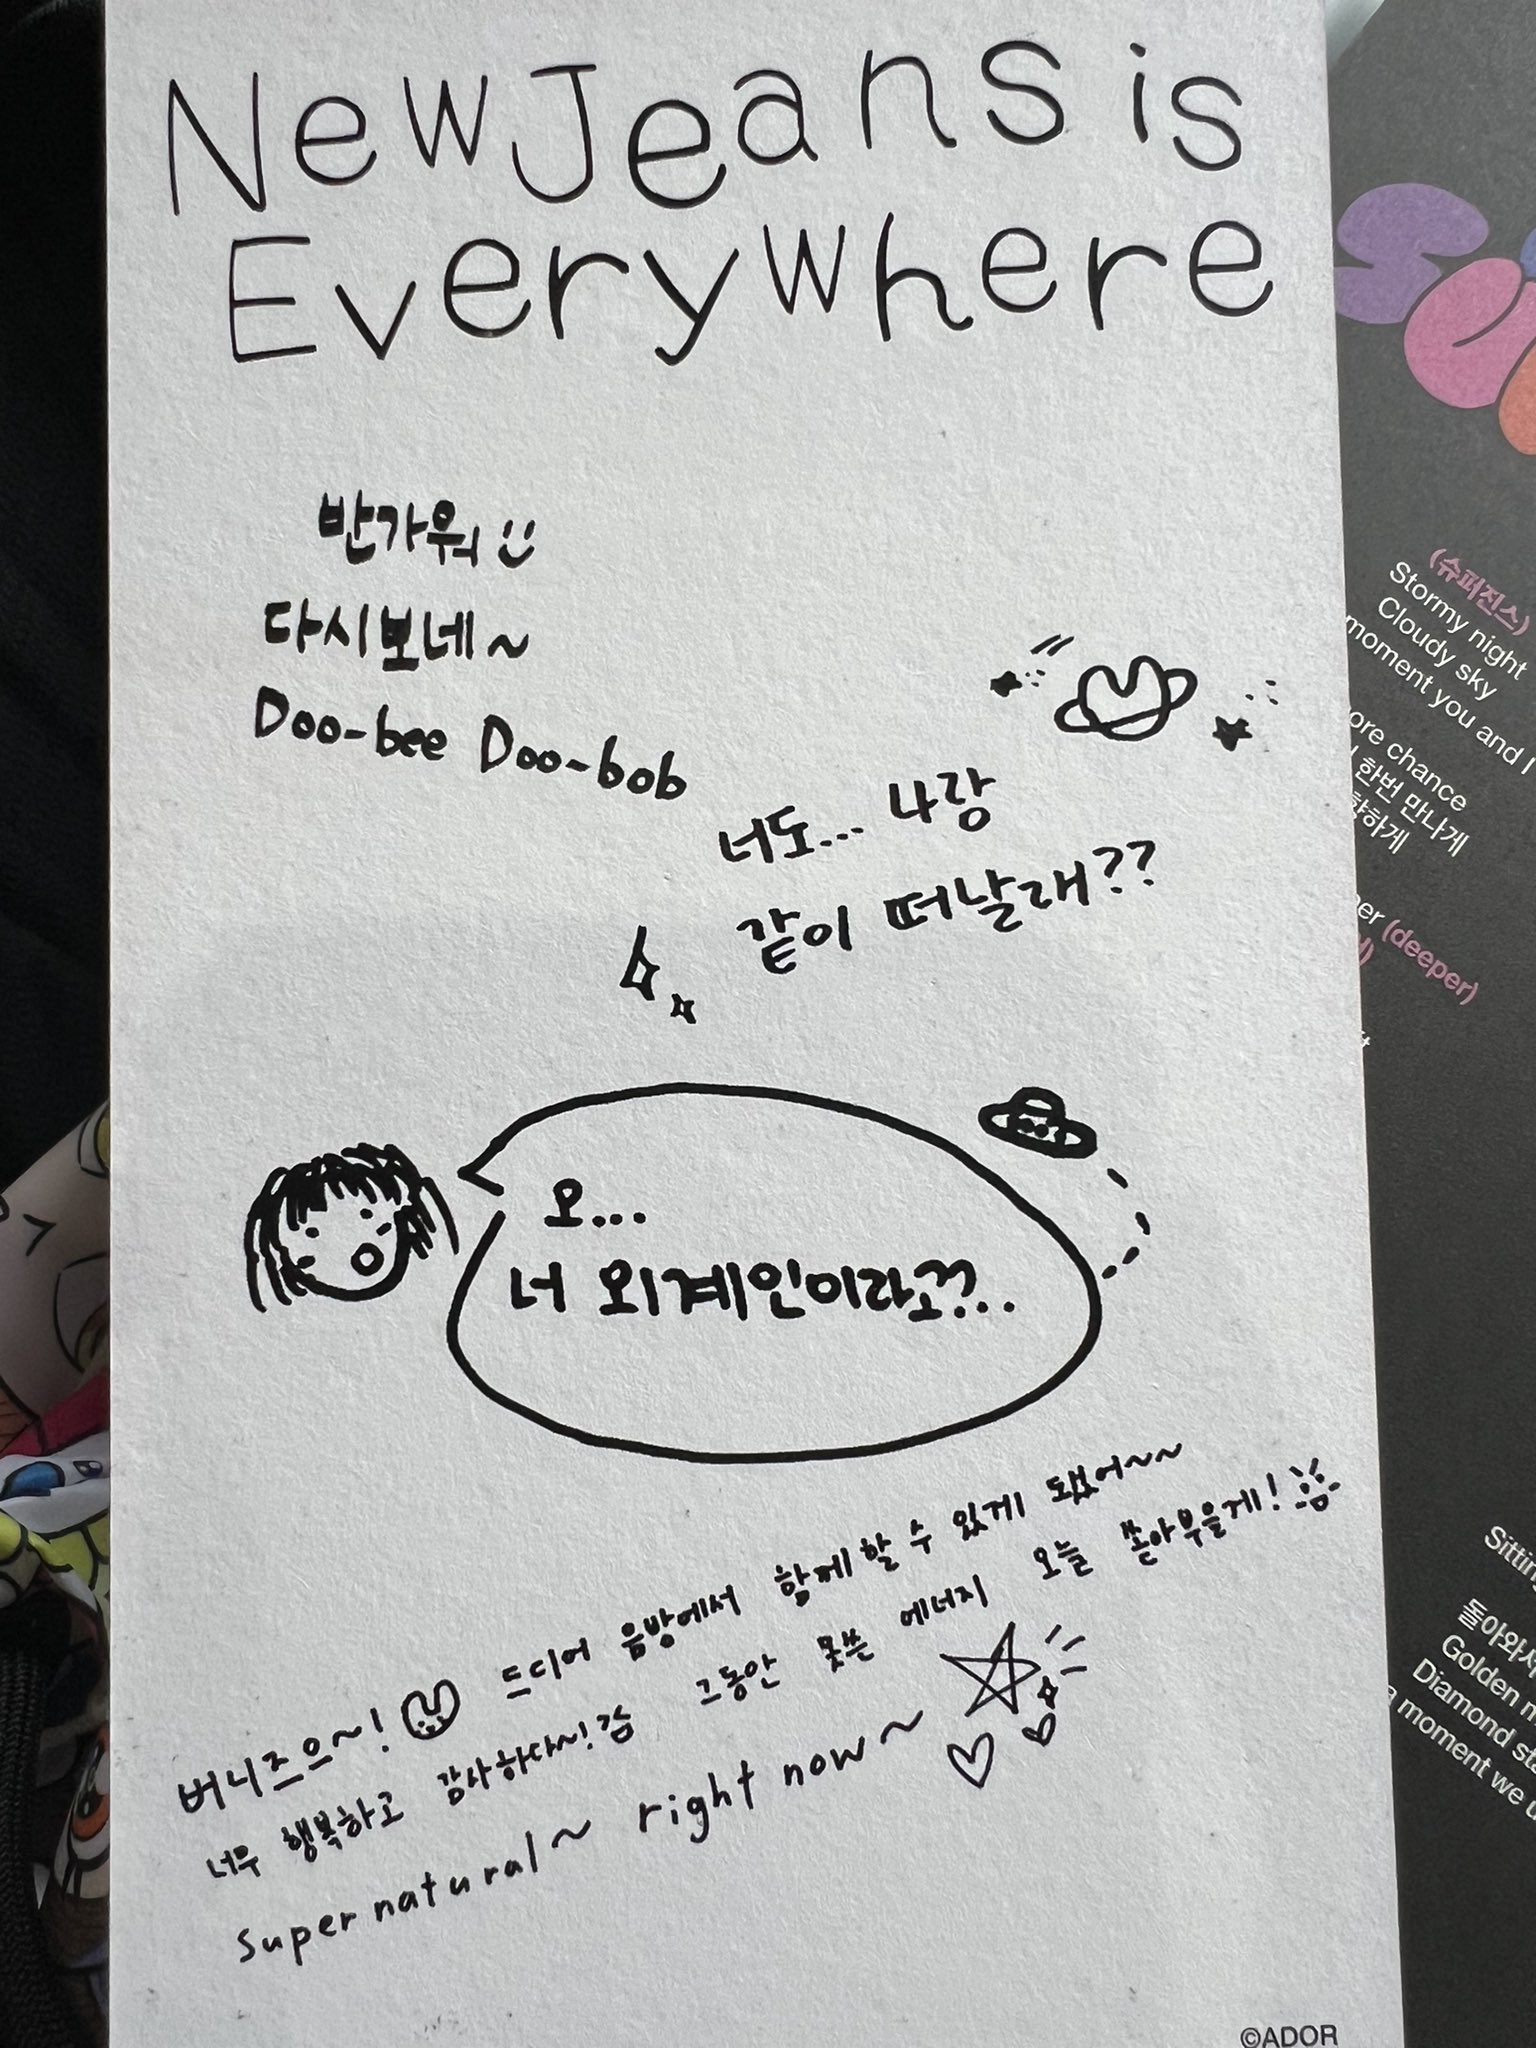 NewJeans is
Everywhere
반가워
다시보네~
Doo-bee Doo-bob
너도... 나랑
같이 떠날래??
오...
너 외계인이라고??...
버니즈으~! 드디어 음방에서 함께할 수 있게 됐어~~
너무 행복하고 감사하다~! 그동안 못쓴 에너지 오늘 쏟아부을게!
Supernatural~ right now~
©ADOR
(슈퍼진스)
Stormy night
Cloudy sky
moment you and I
ore chance
한번 만나게
하게
(deeper)
Sittin
돌아와
Golden
Diamond sta
moment we